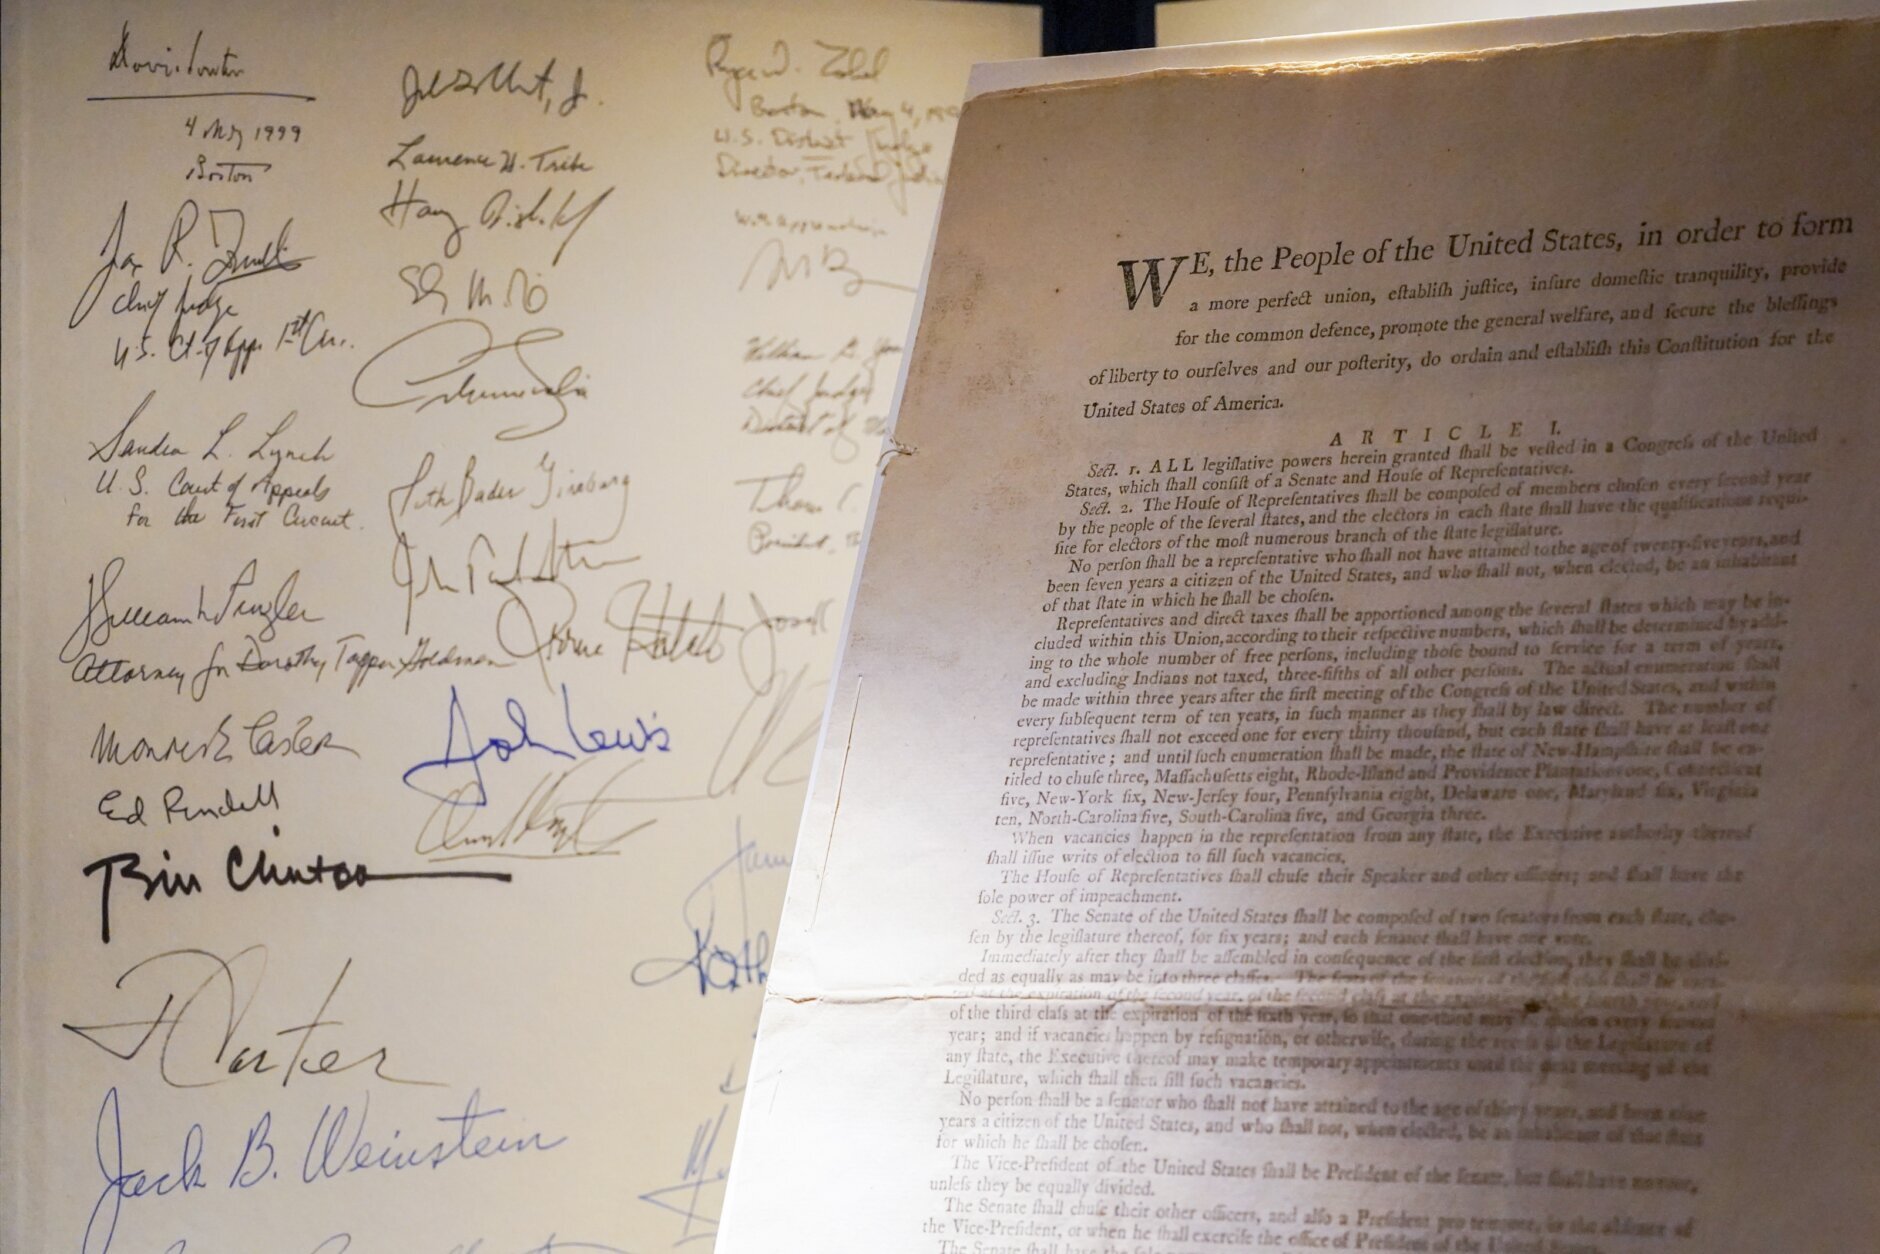 4 May 1999
Boston
Laurence H. Tribe
Chief Judge
U.S. Ct. of App. 1st Cir.
Sandra L. Lynch
U.S. Court of Appeals
for the First Circuit.
Attorney for Dorothy Tapper Goldman
Ed Rendell
Bill Clinton
J Carter
Jack B. Weinstein
Ruth Bader Ginsburg
John Paul Stevens
John Lewis
Boston, May 4, 199
U.S. District Judge
Director, Federal Judi
Chief Judge
District of
President,
WE, the People of the United States, in order to form
a more perfect union, establish justice, insure domestic tranquility, provide
for the common defence, promote the general welfare, and secure the blessings
of liberty to ourselves and our posterity, do ordain and establish this Constitution for the
United States of America.
ARTICLE I.
Sect. 1. ALL legislative powers herein granted shall be vested in a Congress of the United
States, which shall consist of a Senate and House of Representatives.
Sect. 2. The House of Representatives shall be composed of members chosen every second year
by the people of the several states, and the electors in each state shall have the qualifications requi-
site for electors of the most numerous branch of the state legislature.
No person shall be a representative who shall not have attained to the age of twenty-five years, and
been seven years a citizen of the United States, and who shall not, when elected, be an inhabitant
of that state in which he shall be chosen.
Representatives and direct taxes shall be apportioned among the several states which may be in-
cluded within this Union, according to their respective numbers, which shall be determined by add-
ing to the whole number of free persons, including those bound to service for a term of years,
and excluding Indians not taxed, three-fifths of all other persons. The actual enumeration shall
be made within three years after the first meeting of the Congress of the United States, and within
every subsequent term of ten years, in such manner as they shall by law direct. The number of
representatives shall not exceed one for every thirty thousand, but each state shall have at least one
representative; and until such enumeration shall be made, the state of New-Hampshire shall be en-
titled to chuse three, Massachusetts eight, Rhode-Island and Providence Plantations one, Connecticut
five, New-York six, New-Jersey four, Pennsylvania eight, Delaware one, Maryland six, Virginia
ten, North-Carolina five, South-Carolina five, and Georgia three.
When vacancies happen in the representation from any state, the Executive authority thereof
shall issue writs of election to fill such vacancies.
The House of Representatives shall chuse their Speaker and other officers; and shall have the
sole power of impeachment.
Sect. 3. The Senate of the United States shall be composed of two senators from each state, cho-
sen by the legislature thereof, for six years; and each senator shall have one vote.
Immediately after they shall be assembled in consequence of the first election, they shall be divi-
ded as equally as may be into three classes. The seats of the senators of the first class shall be vaca-
ted at the expiration of the second year, of the second class at the expiration of the fourth year, and
of the third class at the expiration of the sixth year, so that one-third may be chosen every second
year; and if vacancies happen by resignation, or otherwise, during the recess of the Legislature of
any state, the Executive thereof may make temporary appointments until the next meeting of the
Legislature, which shall then fill such vacancies.
No person shall be a senator who shall not have attained to the age of thirty years, and been nine
years a citizen of the United States, and who shall not, when elected, be an inhabitant of that state
for which he shall be chosen.
The Vice-President of the United States shall be President of the senate, but shall have no vote,
unless they be equally divided.
The Senate shall chuse their other officers, and also a President pro tempore, in the absence of
the Vice-President, or when he shall exercise the office of President of the United States.
The Senate shall have the sole